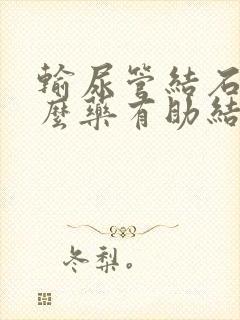 輸尿管結石
麼藥有助結
冬梨。